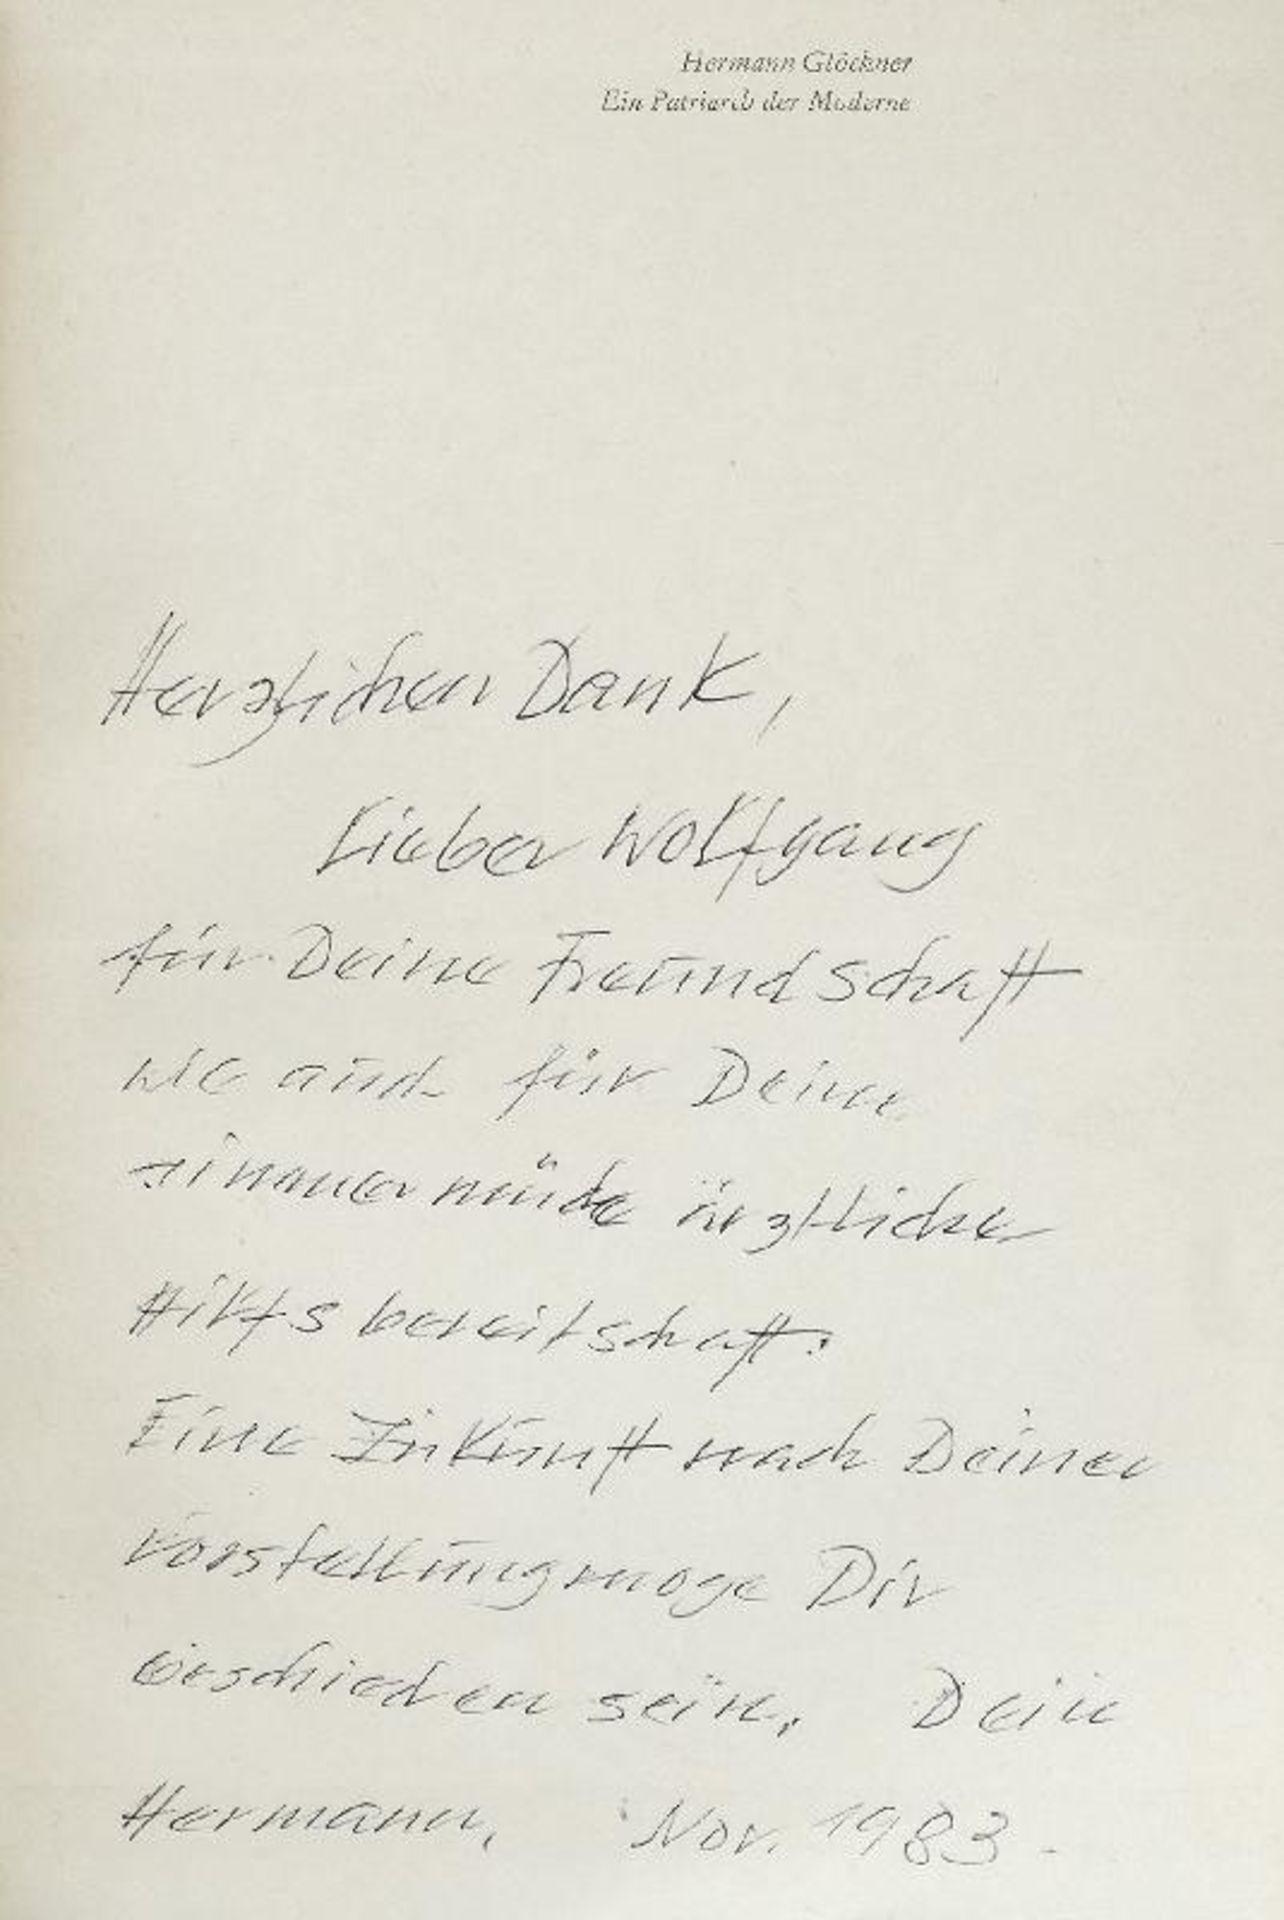 Hermann Glöckner
Ein Patriarch der Moderne
Herzlichen Dank,
Lieber Wolfgang
für Deine Freundschaft
wie auch für Deine
ärztliche
Hilfsbereitschaft.
Eine Zukunft nach Deiner
Vorstellung möge Dir
beschieden sein. Dein
Hermann, Nov. 1983.